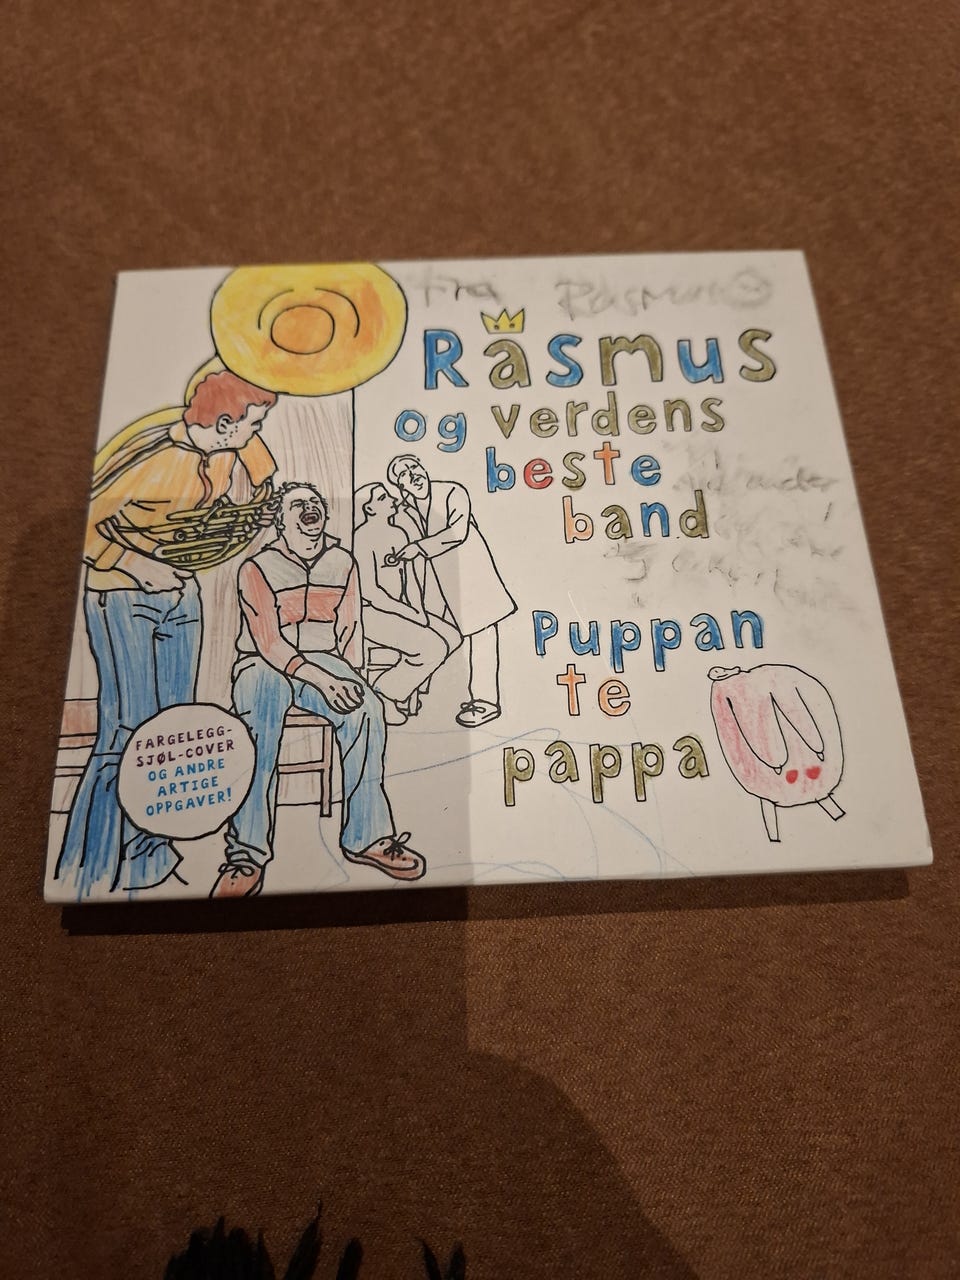 fra Rasmus
Rasmus
og verdens
beste
band
Puppan
te
pappa
FARGELEGG-
SJØL-COVER
OG ANDRE
ARTIGE
OPPGAVER!